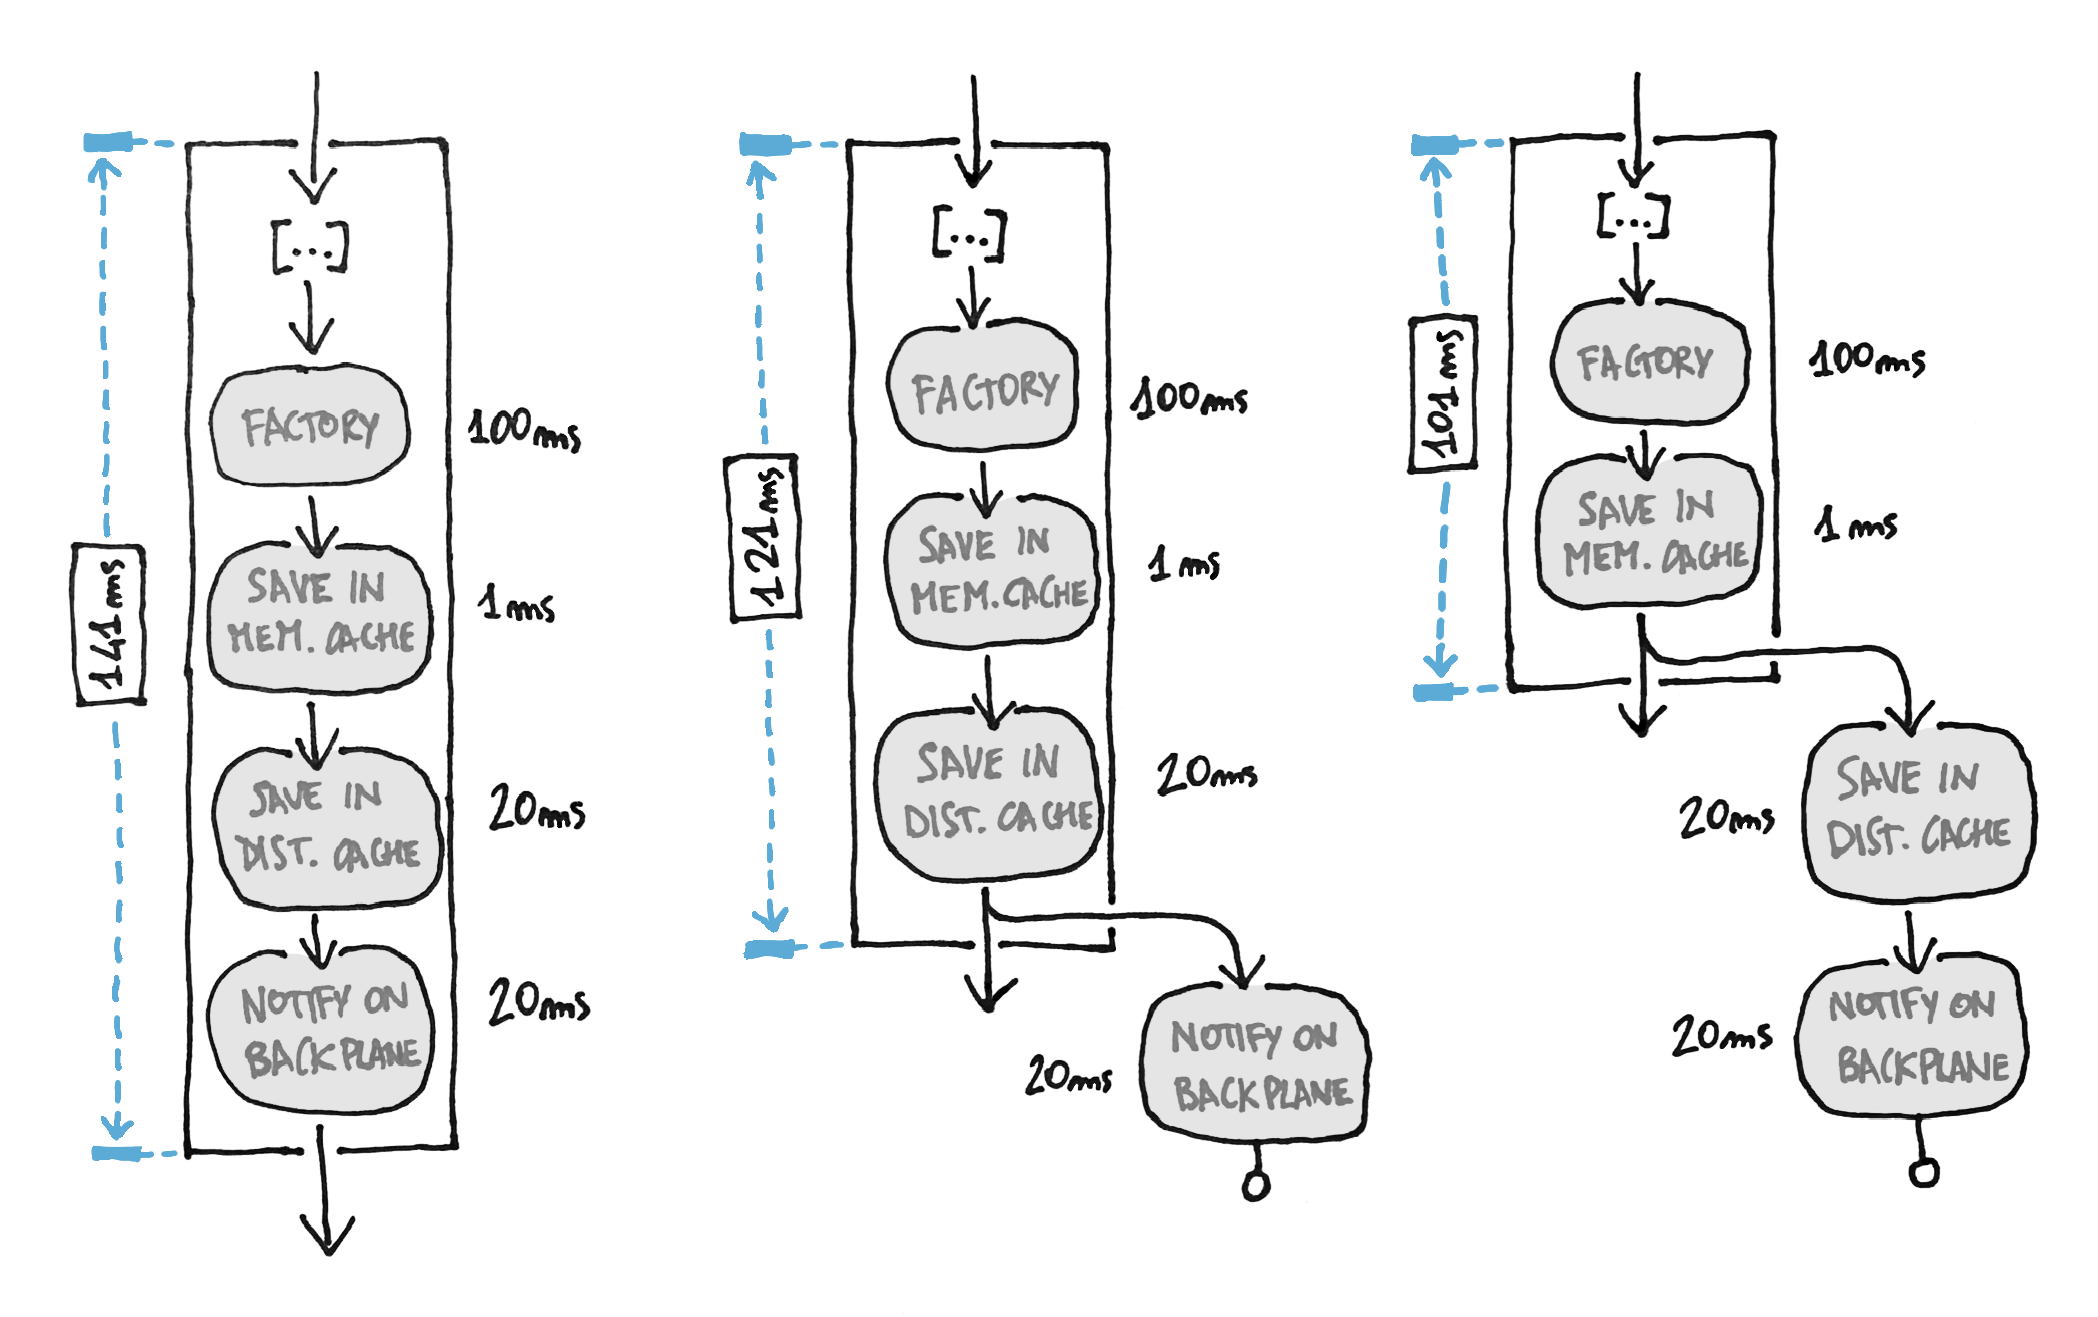 [...]
FACTORY
100ms
SAVE IN
MEM. CACHE
1ms
SAVE IN
DIST. CACHE
20ms
NOTIFY ON
BACKPLANE
20ms
141ms
[...]
FACTORY
100ms
SAVE IN
MEM. CACHE
1ms
SAVE IN
DIST. CACHE
20ms
NOTIFY ON
BACKPLANE
20ms
121ms
[...]
FACTORY
100ms
SAVE IN
MEM. CACHE
1ms
SAVE IN
DIST. CACHE
20ms
NOTIFY ON
BACKPLANE
20ms
101ms